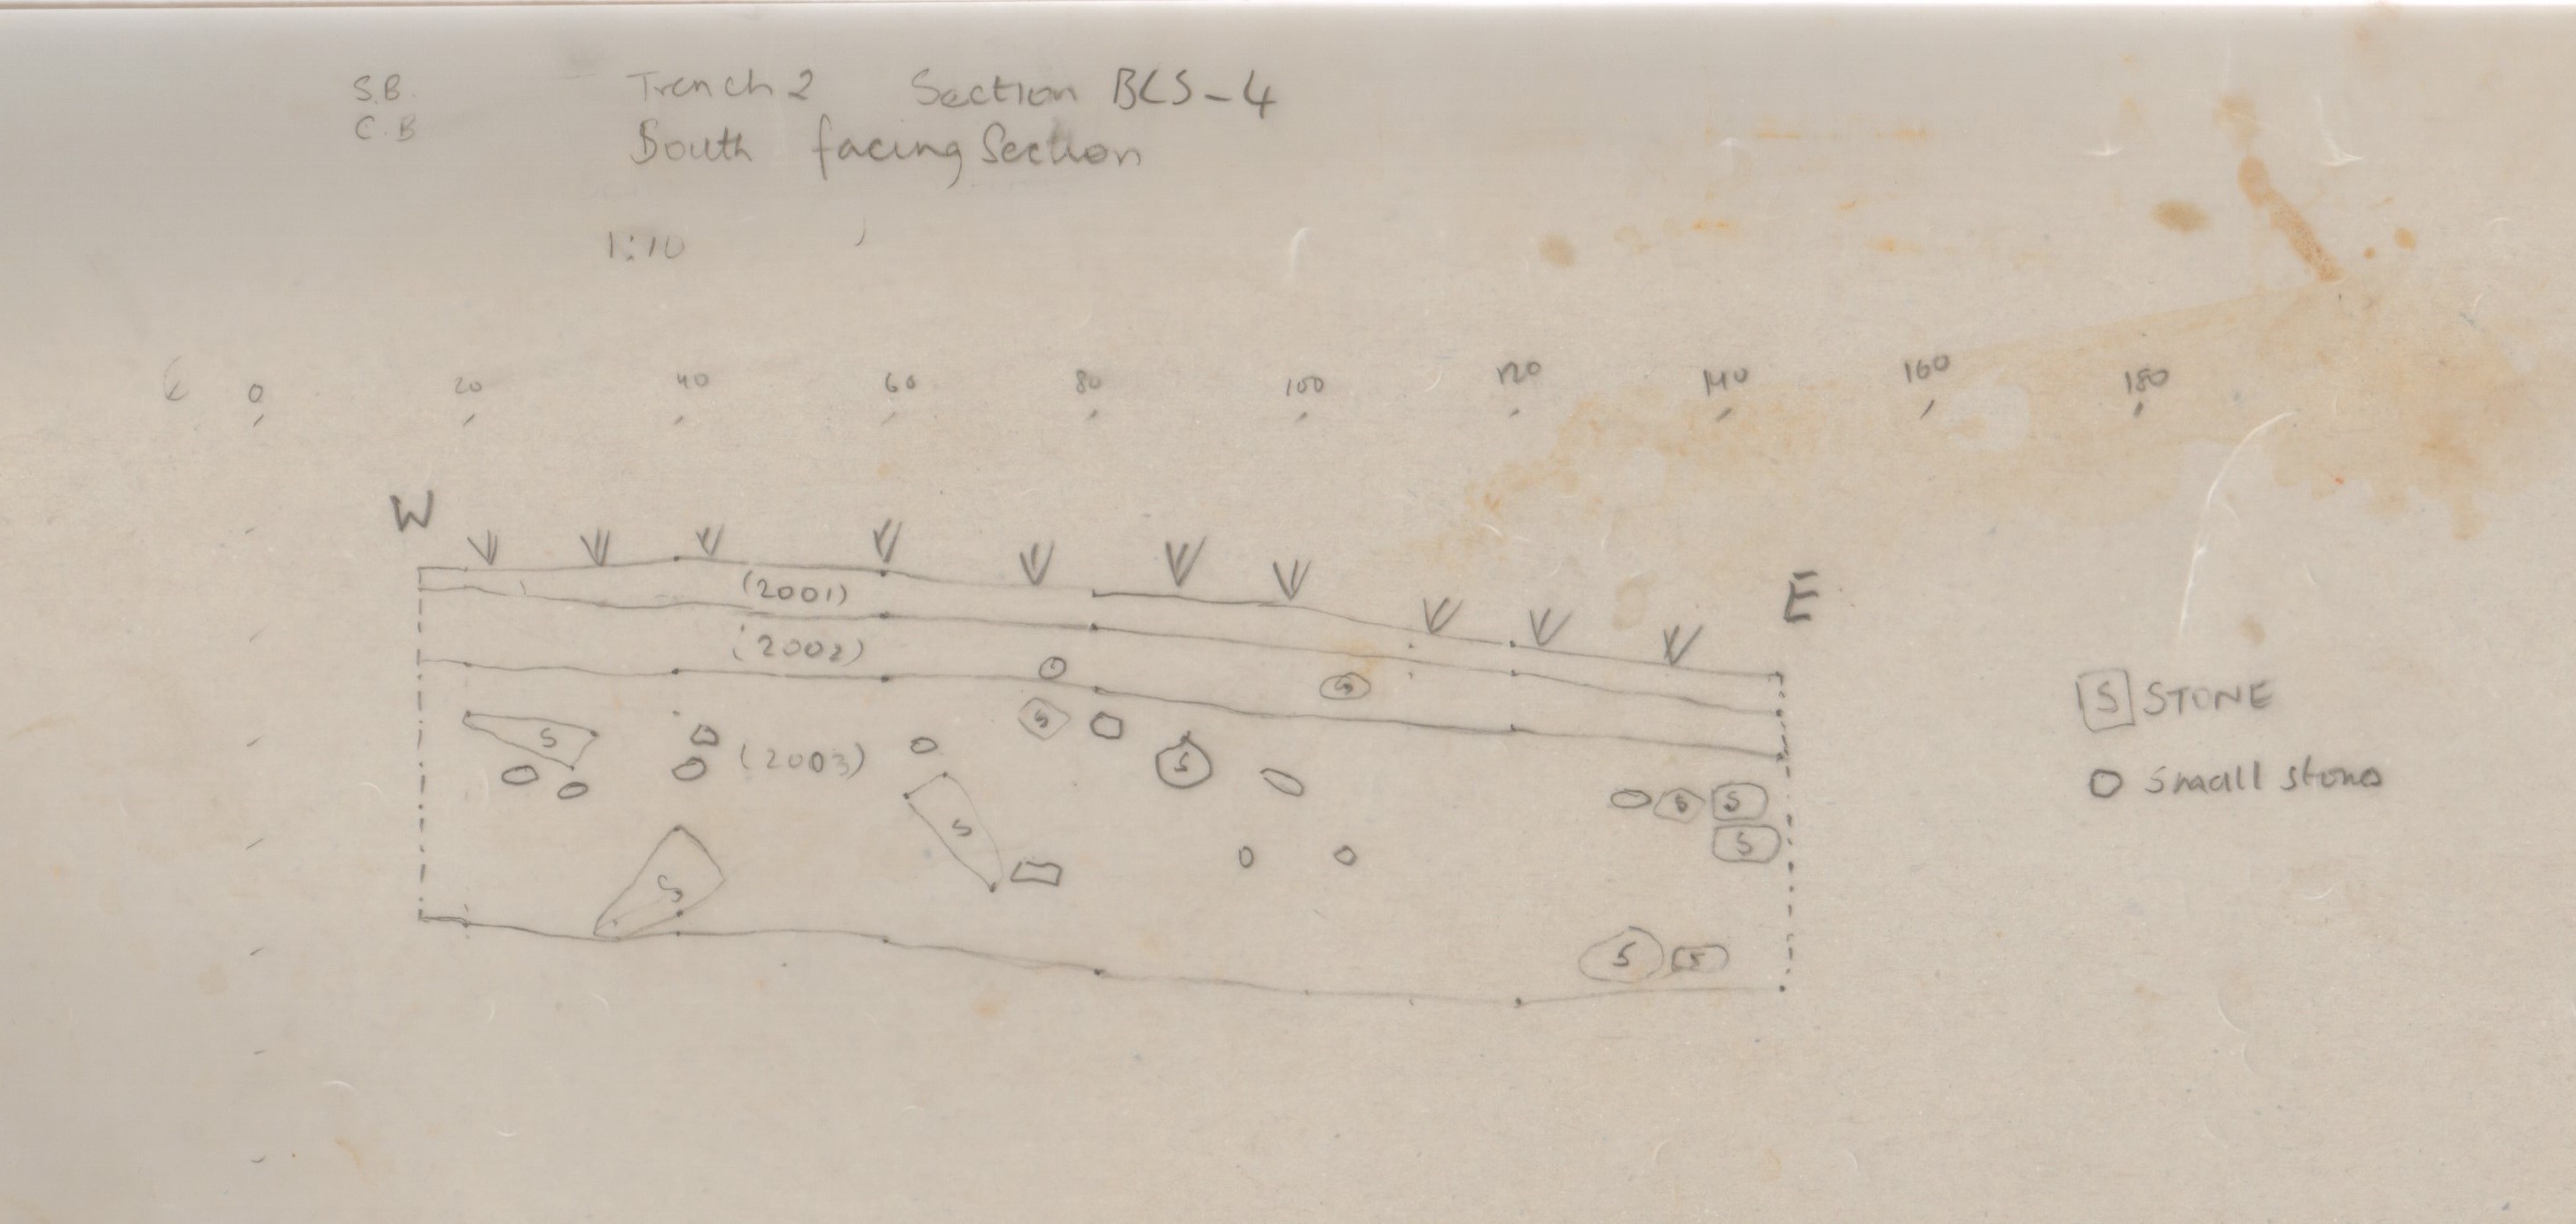 S.B.
C.B
Trench 2 Section BLS-4
South facing Section
1:10
0 20 40 60 80 100 120 140 160 180
W
E
(2001)
(2002)
(2003)
S
S
S
S
S
S
S
S
S
S
S
S STONE
Small stone